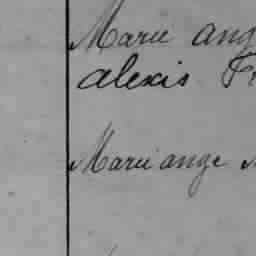 Marie ang
alexis Fr
Marie ange